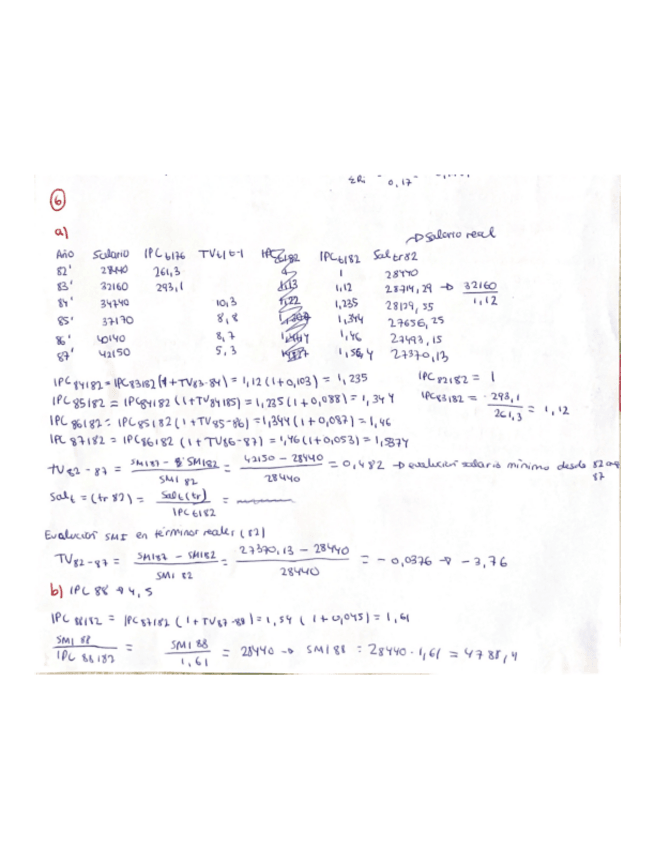 ΣRi = 0,17
6
a)
→ Salario real
Año Salario IPC t/76 TV t/t-1 IPC t/82 Sal tr 82
82' 28440 261,3 1 28440
83' 32160 293,1 1,12 28714,29 → 32160/1,12
84' 34740 10,3 1,235 28129,55
85' 37170 8,8 1,344 27656,25
86' 40140 8,7 1,46 27493,15
87' 42150 5,3 27370,13
IPC84/82 = IPC83/82 (1+TV83-84) = 1,12 (1+0,103) = 1,235 IPC82/82 = 1
IPC85/82 = IPC84/82 (1+TV84/85) = 1,235 (1+0,088) = 1,344 IPC83/82 = 293,1/261,3 = 1,12
IPC86/82 = IPC85/82 (1+TV85-86) = 1,344 (1+0,087) = 1,46
IPC87/82 = IPC86/82 (1+TV86-87) = 1,46 (1+0,053) =
TV82-87 = SMI87 - SMI82 / SMI 82 = 42150 - 28440 / 28440 = 0,482 → evolución salario mínimo desde 82 87
Sal t = (tr 82) = Sal t (tr) / IPC t/82 =
Evolución SMI en términos reales (82)
TV82-87 = SMI87 - SMI82 / SMI 82 = 27370,13 - 28440 / 28440 = - 0,0376 → - 3,76
b) IPC 88 → 4,5
IPC 88/82 = IPC87/82 (1+TV87-88) = 1,54 (1+0,045) = 1,61
SMI 88 / IPC 88/82 = SMI 88 / 1,61 = 28440 → SMI 88 = 28440 · 1,61 = 4788,4